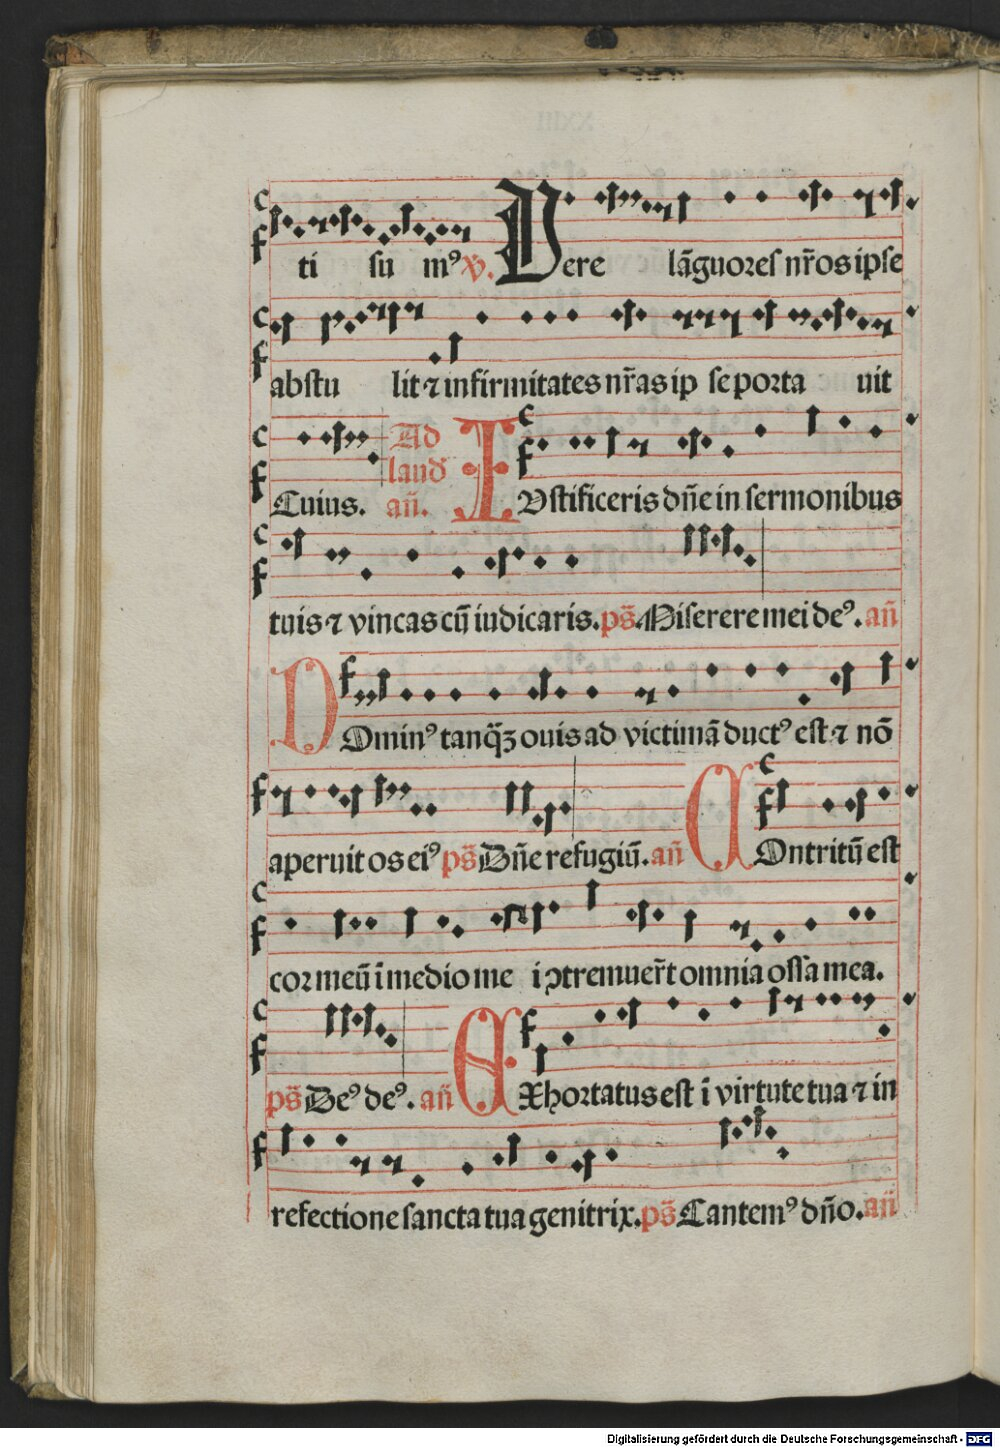 ti su mꝰ ℣. Vere lãguores nr̃os ipse
abstu lit ⁊ infirmitates nr̃as ip se porta uit
Cuius. Ad
laud
an̄. IVstificeris dn̄e in sermonibus
tuis ⁊ vincas cū iudicaris. ps̄. Miserere mei deꝰ. an̄
DOminꝰ tanq̃ʒ ouis ad victimã ductꝰ est ⁊ nõ
aperuit os eiꝰ ps̄ Dn̄e refugiũ. an̄ COntritũ est
cor meũ ĩ medio me i ↄtremuer̃t omnia ossa mea.
ps̄ Deꝰ deꝰ. an̄ EXhortatus est ĩ virtute tua ⁊ in
refectione sancta tua genitrix. ps̄ Cantemꝰ dn̄o. an̄
Digitalisierung gefördert durch die Deutsche Forschungsgemeinschaft - DFG